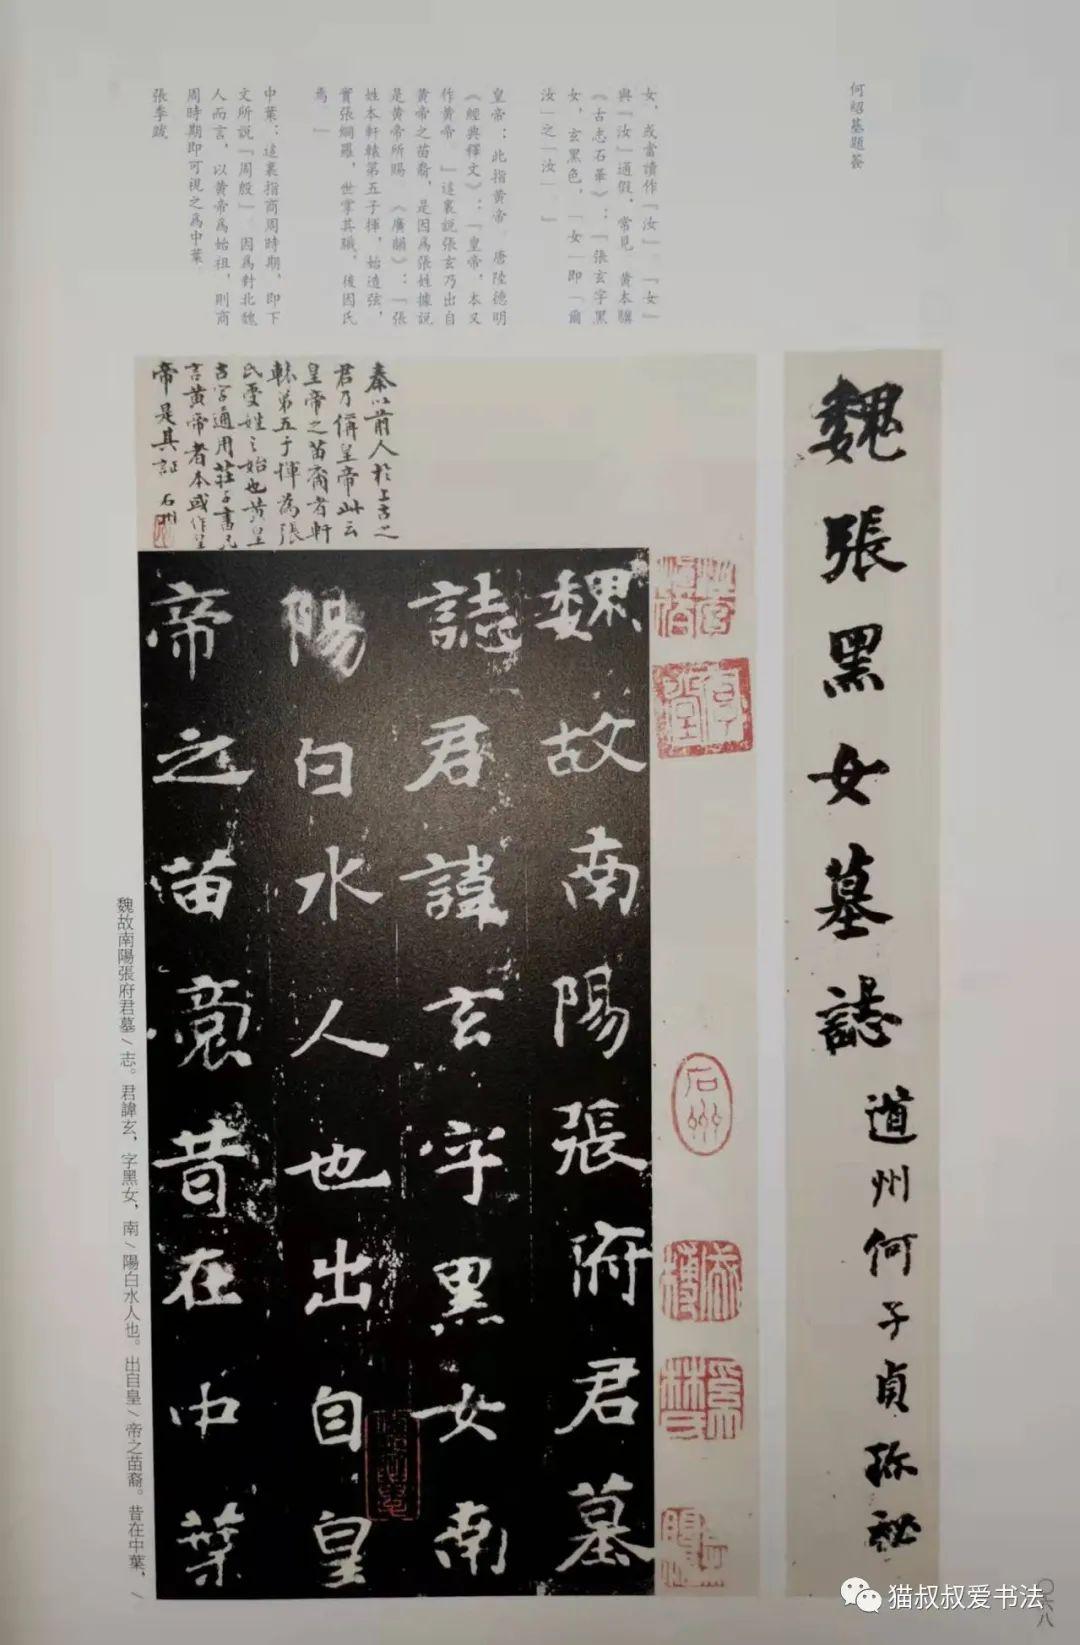 何紹基題簽
女，或當讀作「汝」。「女」
與「汝」通假，常見。黄本驥
《古志石華》：「張玄字黑
女，玄黑色，「女」即「爾
汝」之「汝」。」
皇帝：此指黄帝。唐陸德明
《經典釋文》：「皇帝，本又
作黄帝。」這裏說張玄乃出自
黄帝之苗裔，是因爲張姓據說
是黄帝所賜。《廣韻》：「張
姓本軒轅第五子揮，始造弦，
實張網羅，世掌其職，後因氏
焉。」
中葉：這裏指商周時期，即下
文所說「周殷」。因爲對北魏
人而言，以黄帝爲始祖，則商
周時期即可視之爲中葉。
張季跋
魏張黑女墓誌
道州何子貞珎祕
石州
秦以前人於上古之
君乃偁皇帝此云
皇帝之苗裔者軒
轅弟五子揮為張
氏受姓之始也黄皇
古字通用莊子書凡
言黄帝者本或作皇
帝是其証 石州
魏故南陽張府君墓
誌君諱玄字黑女南
陽白水人也出自皇
帝之苗裔昔在中葉
魏故南陽張府君墓／志。君諱玄，字黑女，南／陽白水人也。出自皇／帝之苗裔。昔在中葉，／
〇六八
猫叔叔爱书法